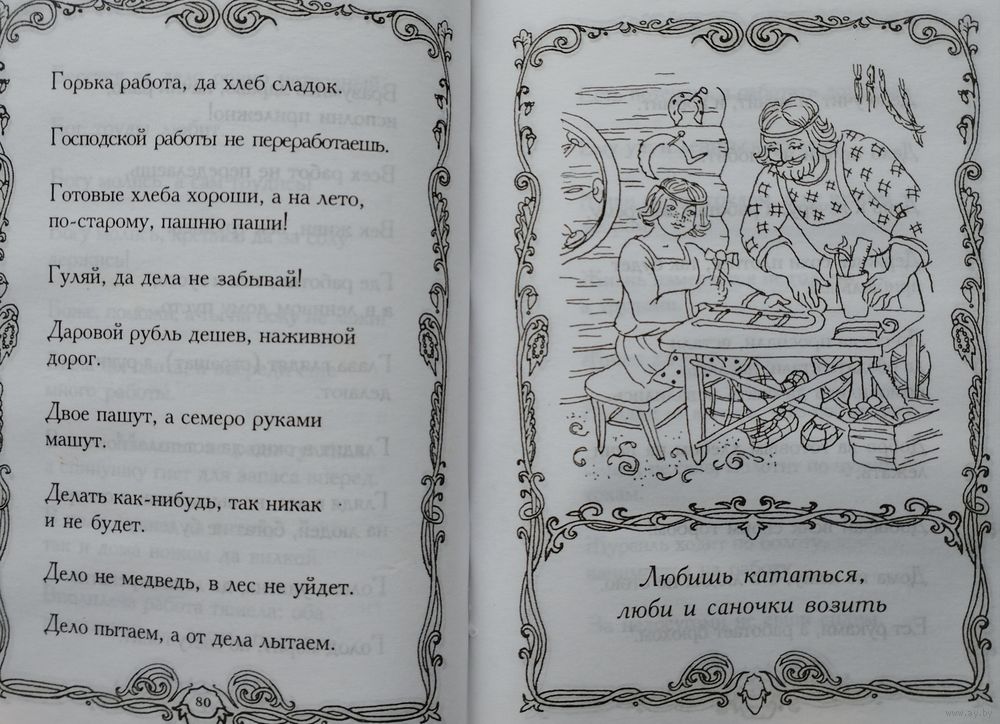 Горька работа, да хлеб сладок.
Господской работы не переработаешь.
Готовые хлеба хороши, а на лето,
по-старому, пашню паши!
Гуляй, да дела не забывай!
Даровой рубль дешев, наживной
дорог.
Двое пашут, а семеро руками
машут.
Делать как-нибудь, так никак
и не будет.
Дело не медведь, в лес не уйдет.
Дело пытаем, а от дела лытаем.
80
Любишь кататься,
люби и саночки возить
www.ay.by